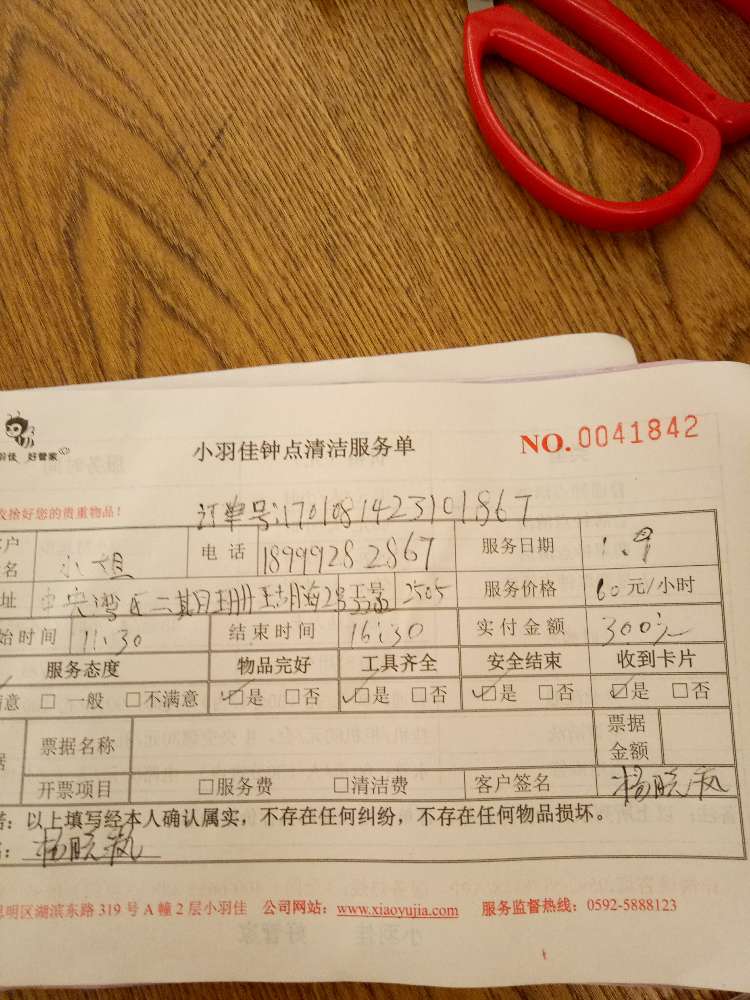 好管家
小羽佳钟点清洁服务单
NO. 0041842
收拾好您的贵重物品！
订单号:170108142310 1867
电话 18999282867 服务日期 1.9
名 小姐
址 中央湾区二期珊瑚海2号 2505 服务价格 60元/小时
始时间 11:30 结束时间 16:30 实付金额 300元
服务态度 物品完好 工具齐全 安全结束 收到卡片
满意 □ 一般 □不满意 □是 □否 □是 □否 □是 □否 □是 □否
票据名称 票据金额
开票项目 □服务费 □清洁费 客户签名 杨晓岚
以上填写经本人确认属实，不存在任何纠纷，不存在任何物品损坏。
杨晓岚
思明区湖滨东路 319 号 A 幢 2 层小羽佳 公司网站：www.xiaoyujia.com 服务监督热线：0592-5888123